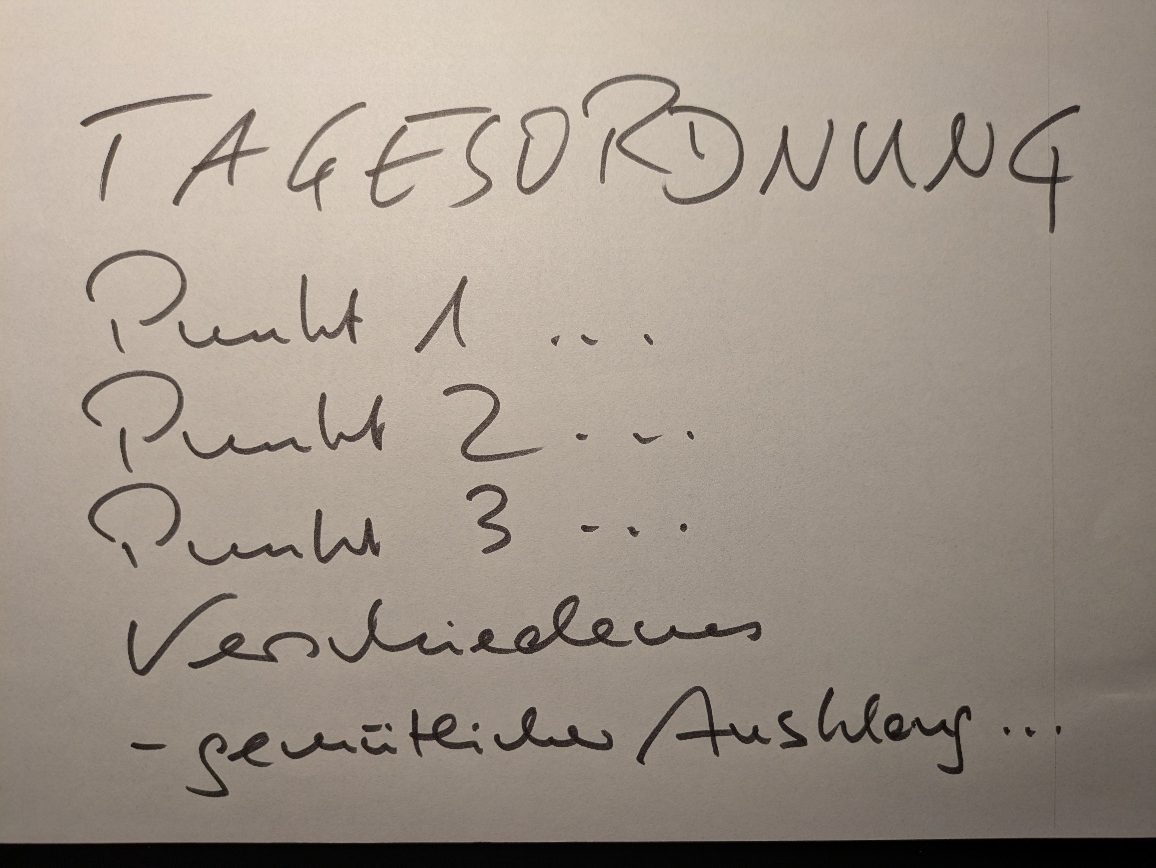 TAGESORDNUNG
Punkt 1 ...
Punkt 2 ...
Punkt 3 ...
Verschiedenes
- gemütlicher Ausklang ...